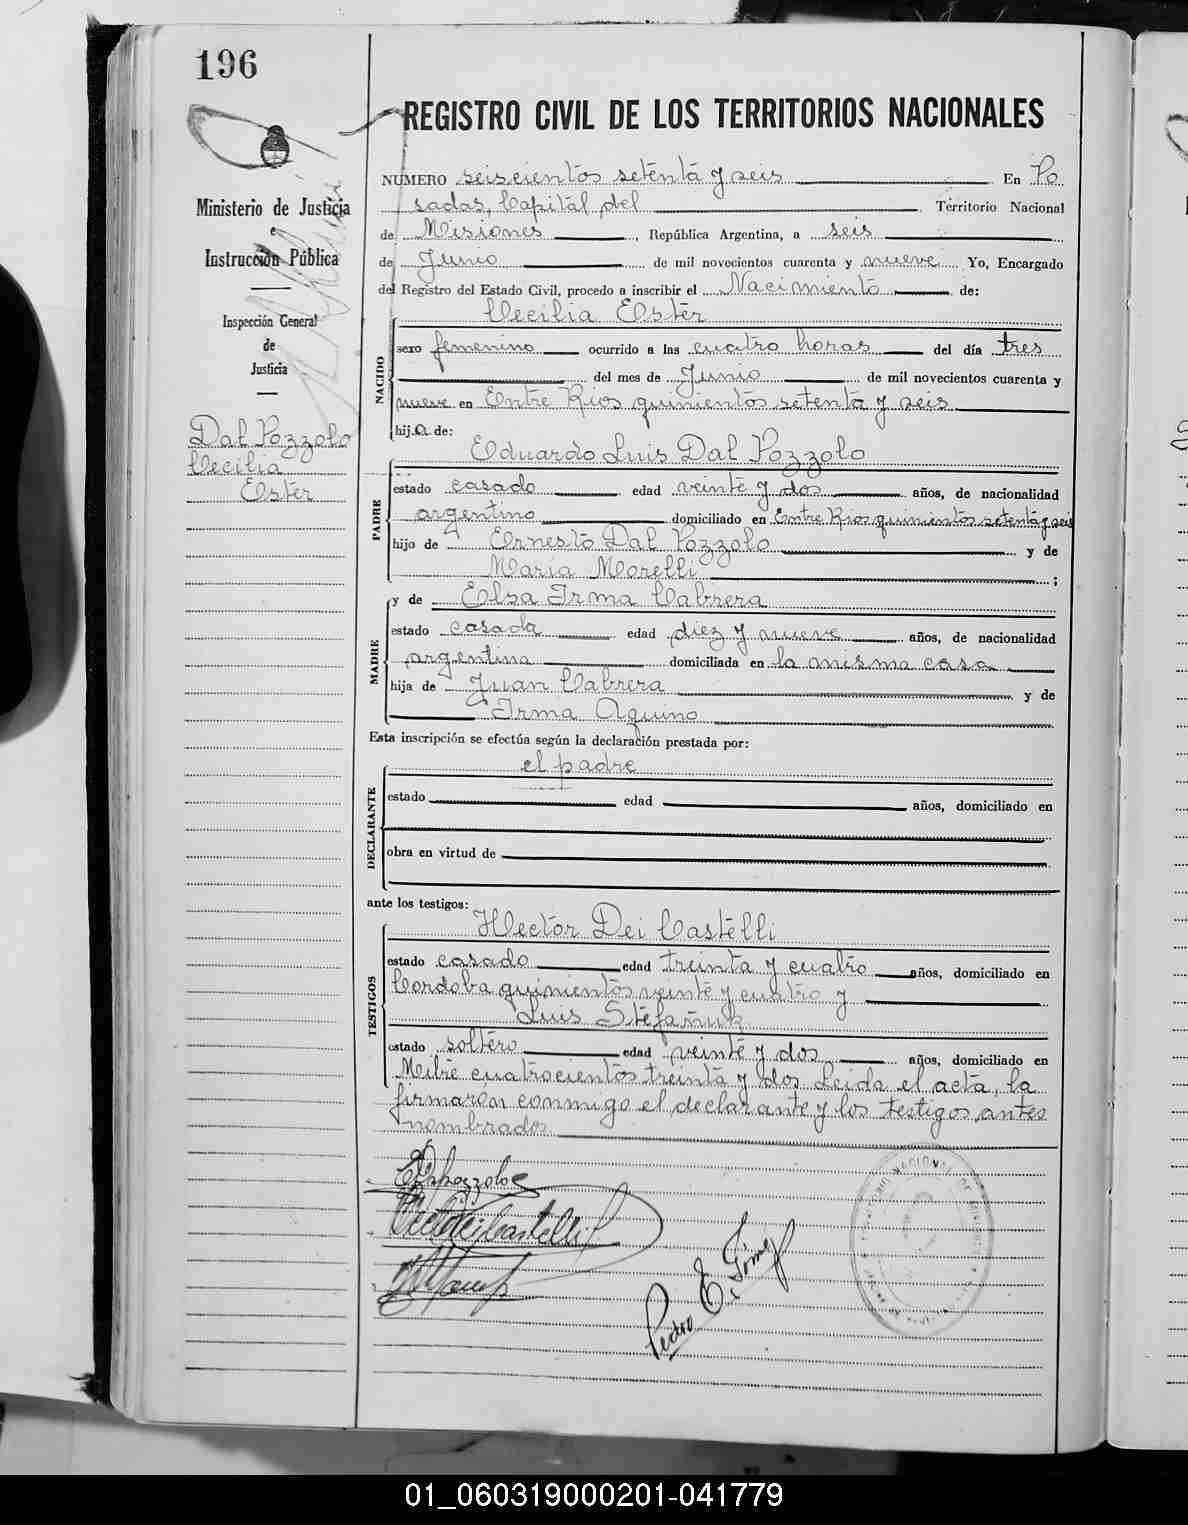 196
REGISTRO CIVIL DE LOS TERRITORIOS NACIONALES
Ministerio de Justicia
e
Instrucción Pública
Inspección General
de
Justicia
Dal Pozzolo
Cecilia
Ester
NUMERO seiscientos setenta y seis En Po
sadas, Capital del Territorio Nacional
de Misiones, República Argentina, a seis
de Junio de mil novecientos cuarenta y nueve Yo, Encargado
del Registro del Estado Civil, procedo a inscribir el Nacimiento de:
Cecilia Ester
NACIDO
sexo femenino ocurrido a las cuatro horas del día tres
del mes de Junio de mil novecientos cuarenta y
nueve en Entre Rios quinientos setenta y seis
hija de:
Eduardo Luis Dal Pozzolo
PADRE
estado casado edad veinte y dos años, de nacionalidad
argentino domiciliado en Entre Rios quinientos setenta y seis
hijo de Ernesto Dal Pozzolo y de
Maria Morelli;
y de Elsa Irma Cabrera
MADRE
estado casada edad diez y nueve años, de nacionalidad
argentina domiciliada en la misma casa
hija de Juan Cabrera y de
Irma Aquino
Esta inscripción se efectúa según la declaración prestada por:
el padre
DECLARANTE
estado edad años, domiciliado en
obra en virtud de
ante los testigos:
Hector Dei Castelli
TESTIGOS
estado casado edad treinta y cuatro años, domiciliado en
Cordoba quinientos veinte y cuatro y
Luis Stefañuk
estado soltero edad veinte y dos años, domiciliado en
Mitre cuatrocientos treinta y dos Leida el acta, la
firmaron conmigo el declarante y los testigos antes
nombrados
EDalpozzolo
Hector Dei Castelli
Pedro E. Gómez
01_060319000201-041779